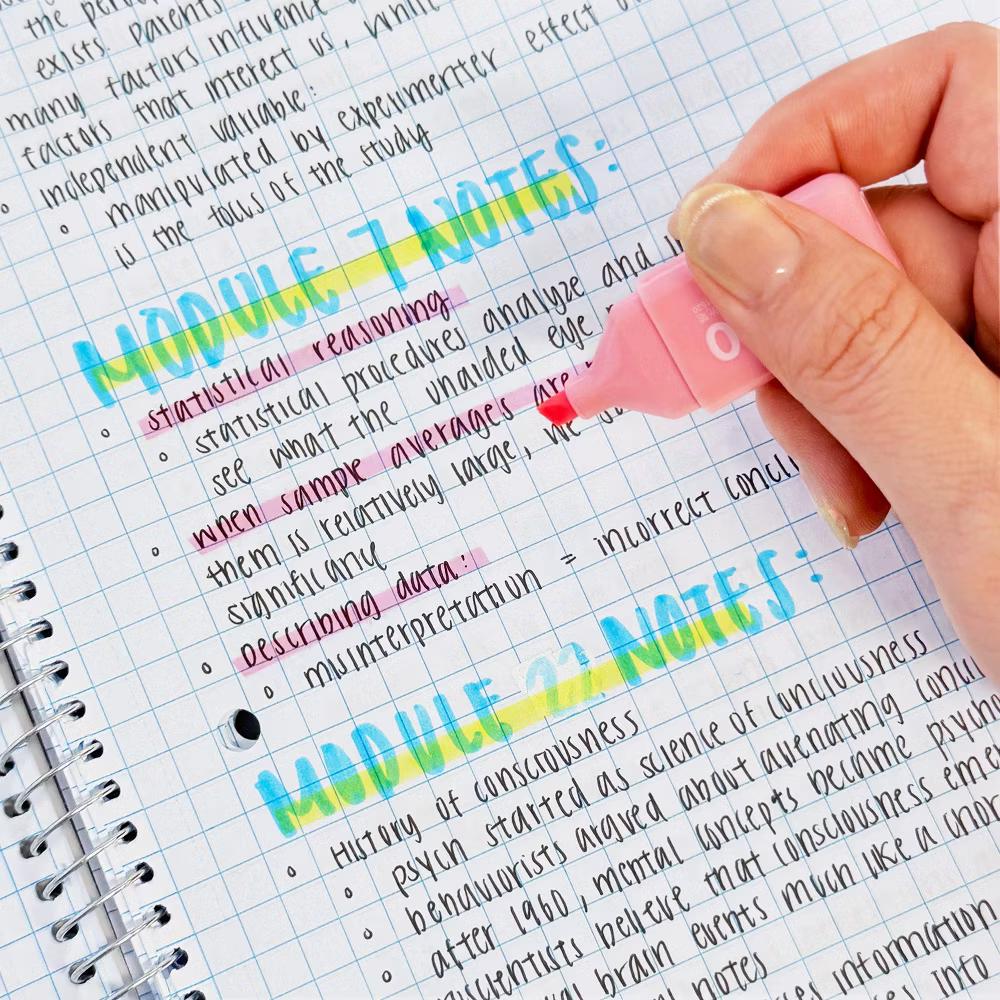 the
exists. parents
many factors influence
factors that interest us, while
independent variable:
manipulated by experimenter effect
is the focus of the study
MODULE 7 NOTES:
statistical reasoning
statistical procedures analyze and
see what the unaided eye
when sample averages are
them is relatively large, we
significance
Describing data:
misinterpretation = incorrect
MODULE 22 NOTES:
History of consciousness
psych started as science of conciousness
behaviorists argued about alienating
after 1960, mental concepts became
believe that consciousness
brain events much like a
notes
information
info